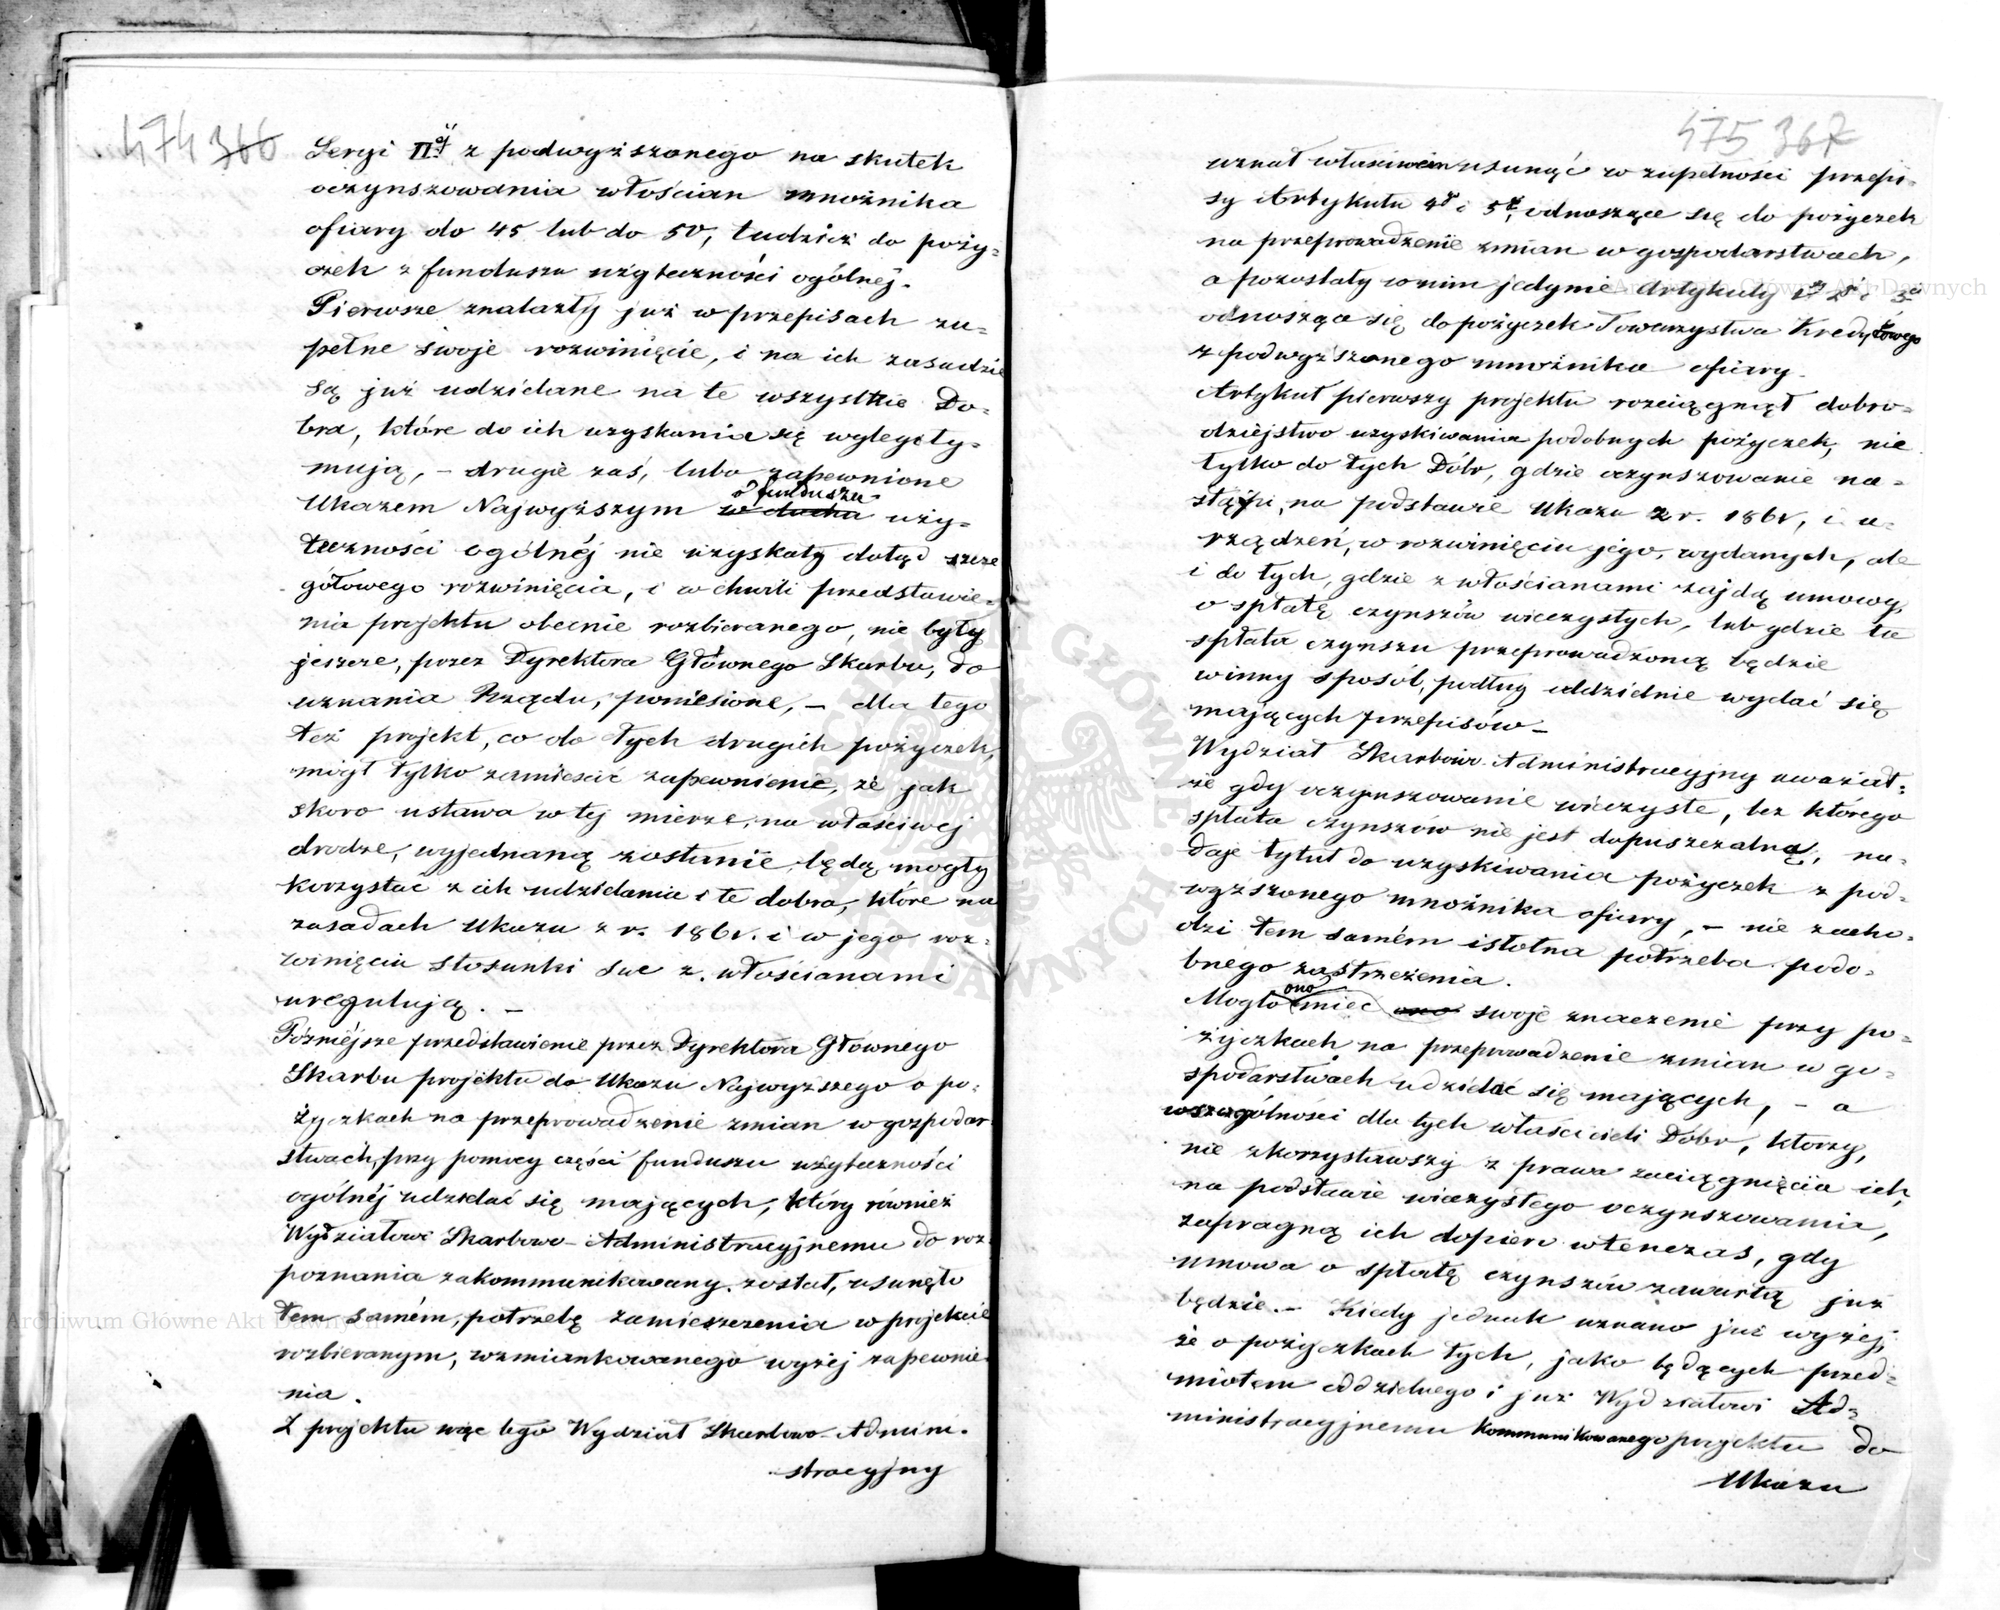 474 366
Seryi IIéj z podwyższonego na skutek
oczynszowania włościan mnożnika
ofiary do 45 lub do 50, tudzież do poży-
czek z funduszu użyteczności ogólnéj.
Pierwsze znalazły już w przepisach zu-
pełne swoje rozwinięcie, i na ich zasadzie
są już udzielane na te wszystkie Do-
bra, które do ich uzyskania się wylegity-
mują, – drugie zaś, lubo zapewnione
Ukazem Najwyższym w duchu o funduszu uży-
teczności ogólnéj nie uzyskały dotąd szcze
gółowego rozwinięcia, i w chwili przedstawie-
nia projektu obecnie rozbieranego, nie były
jeszcze, przez Dyrektora Głównego Skarbu, do
uznania Rządu, poniesione, – dla tego
też projekt, co do tych drugich pożyczek,
mógł tylko zamieścić zapewnienie, że jak
skoro ustawa w tej mierze, na właściwej
drodze, wyjednaną zostanie, będą mogły
korzystać z ich udzielania i te dobra, które na
zasadach Ukazu z r. 1861. i w jego roz-
winięciu stosunki swe z włościanami
uregulują. –
Późniéjsze przedstawienie przez Dyrektora Głownego
Skarbu projektu do Ukazu Najwyższego o po-
życzkach na przeprowadzenie zmian w gospodar
stwach, przy pomocy części funduszu użyteczności
ogólnéj udzielać się mających, który również
Wydziałowi Skarbowo-Administracyjnemu do roz
poznania zakommunikowany został, usunęło
tem samém, potrzebę zamieszczenia w projekcie
rozbieranym, wzmiankowanego wyżéj zapewnie-
nia.
Z projektu więc tego Wydział Skarbowo-Admini-
stracyjny
475 367
uznał właściwem usunąć w zupełności przepi-
sy Artykułu 4go i 5go, odnoszące się do pożyczek
na przeprowadzenie zmian w gospodarstwach,
a pozostały w nim jedynie Artykuły 1y 2i i 3i
odnoszące się do pożyczek Towarzystwa Kredytowego
z podwyższonego mnożnika ofiary.
Artykuł pierwszy projektu rozciągnął dobro-
dziejstwo uzyskiwania podobnych pożyczek, nie
tylko do tych Dóbr, gdzie oczynszowanie na-
stąpi, na podstawie Ukazu z r. 1861, i u-
rządzeń, w rozwinięciu jego, wydanych, ale
i do tych, gdzie z włościanami zajdą umowy,
o spłatę czynszów wieczystych, lub gdzie ta
spłata czynszu przeprowadzoną będzie
w inny sposób, podług oddzielnie wydać się
mających przepisów –
Wydział Skarbowo-Administracyjny uważał-
że gdy oczynszowanie wieczyste, bez którego
spłata czynszów nie jest dopuszczalną, na-
daje tytuł do uzyskiwania pożyczek z pod-
wyższonego mnożnika ofiary, – nie zacho-
dzi tem samém istotna potrzeba podo-
bnego zastrzeżenia.
Mogło ono mieć ono swoje znaczenie przy po-
życzkach na przeprowadzenie zmian w go-
spodarstwach udzielać się mających, – a
w szczególności dla tych właścicieli Dóbr, którzy,
nie skorzystawszy z prawa zaciągnięcia ich,
na podstawie wieczystego oczynszowania,
zapragną ich dopiero wtenczas, gdy
umowa o spłatę czynszów zawartą już
będzie. – Kiedy jednak uznano już wyżej,
że o pożyczkach tych, jako będących przed-
miotem oddzielnego i już Wydziałowi Ad-
ministracyjnemu kommunikowanego projektu do
Ukazu